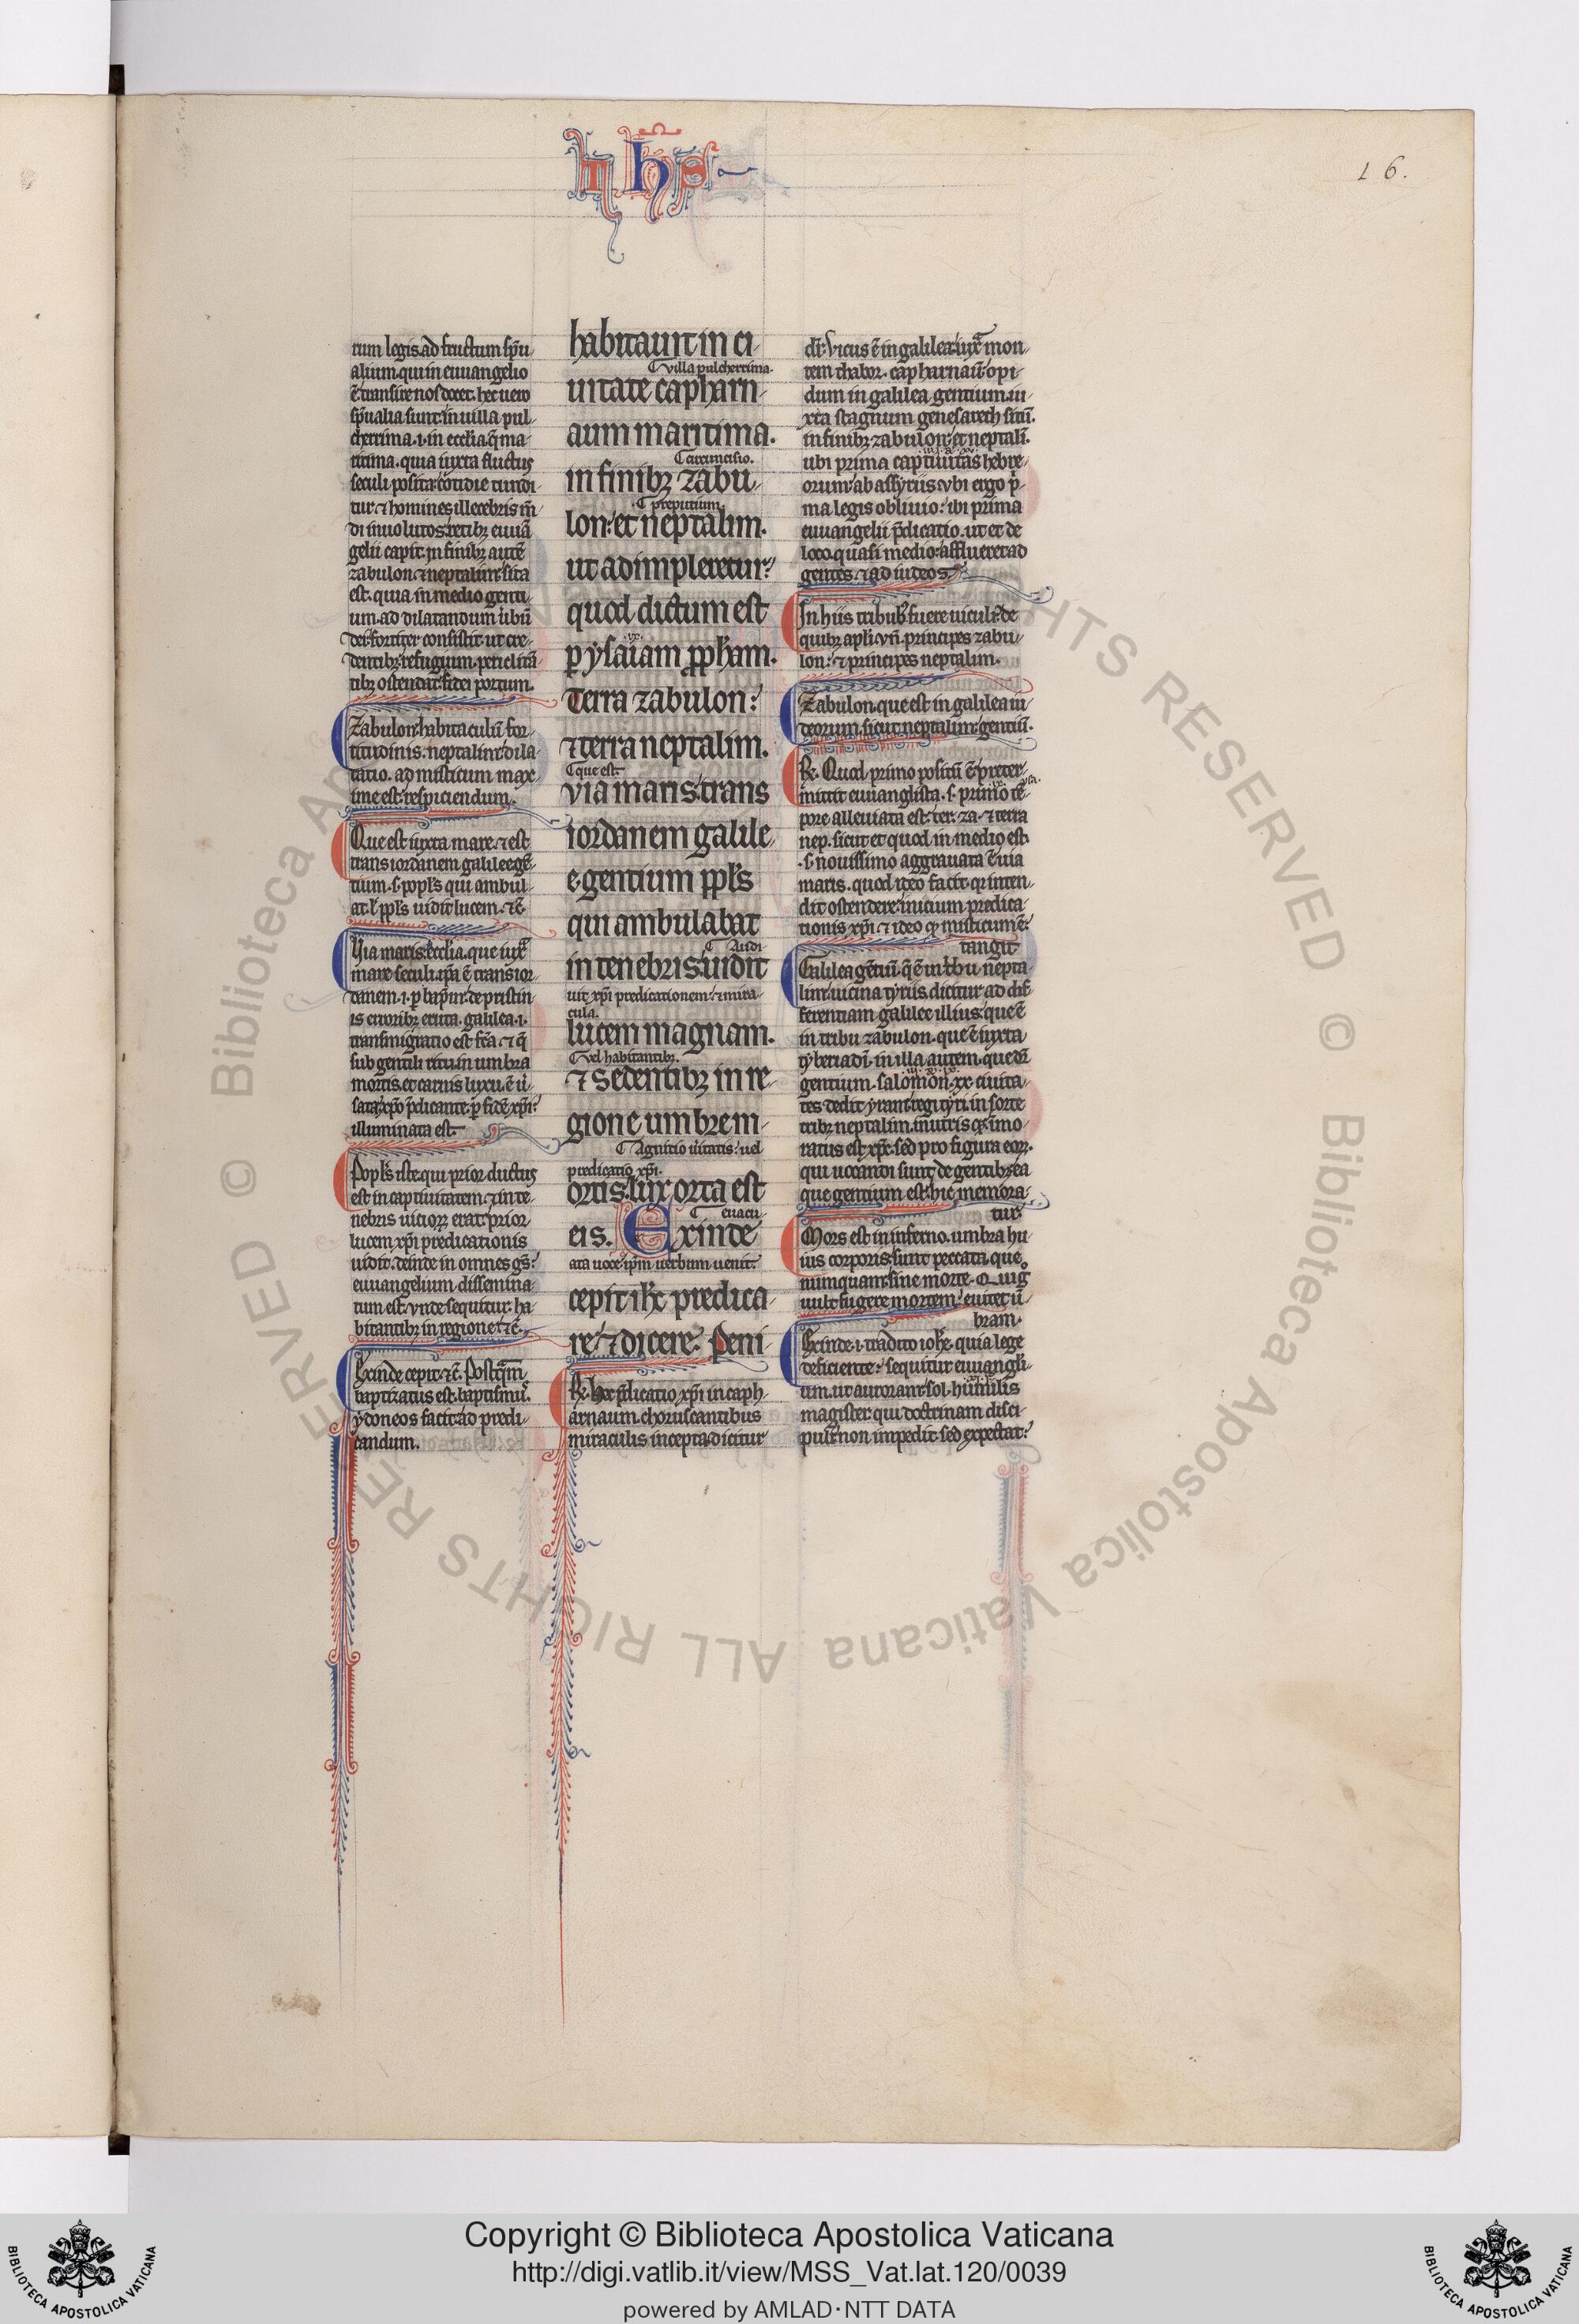 T hS
16.
tum legis. ad fructum sp̄u-
alium. qui in euuangelio
ē transire nos docet. hec uero
sp̄ualia sunt. in uilla pul-
cherrima .i. in ecclīa. q̄ ma-
ritima. quia iuxta fluctus
seculi posita: cotidie tundi-
tur. ⁊ homines illecebris mū-
di inuolutos: retibꝫ euuā-
gelii capit. In finibꝫ autē
zabulon ⁊ neptalim: sita
est. quia in medio genti-
um. ad dilatandum ūbū
dei: fortiter consistit. ut cre-
dentibꝫ: refugium. periclitā-
tibꝫ ostendat: fidei portum.
Zabulon: habitaculū for-
titudinis. neptalim: dila-
tatio. ad misticum max-
ime est. respiciendum.
Que est iuxta mare. ⁊ est
trans iordanem galilee gē-
tium .s. popl̄s qui ambul-
at. ł ppl̄s uidit lucem. ⁊c̄
Via maris: ecclīa. que iux̄
mare seculi. ip̄a ē trans ior-
danem .i. ꝑ bap̄m: de pristin-
is erroribꝫ eruta. galilea .i.
transmigratio est fc̄a. ⁊ q̄
sub gentili ritu. in umbra
mortis. et carnis luxu. ē ū-
sata: xp̄o p̄dicante. ꝑ fidē xp̄i:
illuminata est.
Popl̄s iste. qui prior ductus
est in captiuitatem. ⁊ in te-
nebris uicioꝝ erat: prior
lucem xp̄i predicationis
uidit. deinde in omnes gs̄:
euuangelium dissemina-
tum est. vnde sequitur. ha-
bitantibꝫ in regione. ⁊c̄.
Exinde cepit. ⁊c̄. Postq̄m
baptizatus est. baptismū:
ydoneos facit: ad predi-
candum.
habitauit in ci-
villa pulcherrima.
uitate capharn-
aum maritima.
circumcisio.
in finibꝫ zabu-
preputium
lon: et neptalim.
ut adimpleretur:
quod dictum est
ꝑ ysaiam ꝓpham.
Terra zabulon:
⁊ terra neptalim.
que est.
via maris: trans
iordanem galile-
e. gentium ppl̄s
qui ambulabat
Audi-
in tenebris: uidit
uit xp̄i predicationem. ⁊ mira-
cula.
lucem magnam.
vel habitantibꝫ.
⁊ sedentibꝫ in re-
gione umbre m-
Agnitio ūitatis: uel
predicatio xp̄i.
ortis: lux orta est
euacu-
eis. Exinde
ata uoce. ip̄m uerbum uenit.
cepit ih̄c predica-
re: ⁊ dicere. Peni-
R. Hec p̄dicatio xp̄i in caph-
arnaum. choruscantibus
miraculis incepta: dicitur
dr̄. Vicus ē in galilea: iux̄ mon-
tem thabor. capharnaū: opi-
dum in galilea gentium. iu-
xta stagnum genesareth sitū.
in finibꝫ zabulon: et neptali.
ubi prima captiuitas hebre-
orum: ab assyriis. vbi ergo p̄-
ma legis obliuio: ibi prima
euuangelii p̄dicatio. ut et de
loco quasi medio: afflueret ad
gentes. ⁊ ad iudeos.
In hiis tribubꝫ fuere uiculi: de
quibꝫ apl̄i. vn̄. principes zabu-
lon: ⁊ principes neptalim.
Zabulon: que est in galilea iu-
deorum. sicut neptalim: gentiū.
R. Quod primo positū ē: preter-
mittit euuangelista .s. primo tē-
pore alleuiata est. ter. za. ⁊ terra
nep. sicut et quod in medio est.
.s. nouissimo aggrauata ē uia
maris. quod ideo facit. qr̄ inten-
dit ostendere: inicium predica-
tionis xp̄i. ⁊ ideo qͦ misticum ē:
tangit
Galilea gētiū. q̄ ē in tribu nepta-
lim: uicina tyriis dicitur. ad dif-
ferentiam galilee illius: que ē
in tribu zabulon. que ē iuxta
tyberiadē. in illa autem. que dr̄
gentium. salomon. xx. ciuita-
tes dedit yram: regi tyri. in sorte
tribꝫ neptalim. in utrisqꝫ. imo-
ratus est xp̄c. sed pro figura eoꝝ.
qui uocandi sunt de gentibꝫ: ea
que gentium est. hic memora-
tur.
Mors est in inferno. umbra hu-
ius corporis: sunt peccata. que
numquam: sine morte. Qui g̊
uult fugere mortem: euitet ū-
bram.
Exinde .i. tradito ioh̄e. quia lege
deficiente: sequitur euuangli-
um. ut auroram: sol. humilis
magister qui doctrinam disci-
puli: non impedit sed expectat:
© Biblioteca Apostolica Vaticana ALL RIGHTS RESERVED © Biblioteca Apostolica Vaticana ALL RIGHTS RESERVED
Copyright © Biblioteca Apostolica Vaticana
http://digi.vatlib.it/view/MSS_Vat.lat.120/0039
powered by AMLAD·NTT DATA
BIBLIOTECA APOSTOLICA VATICANA
BIBLIOTECA APOSTOLICA VATICANA